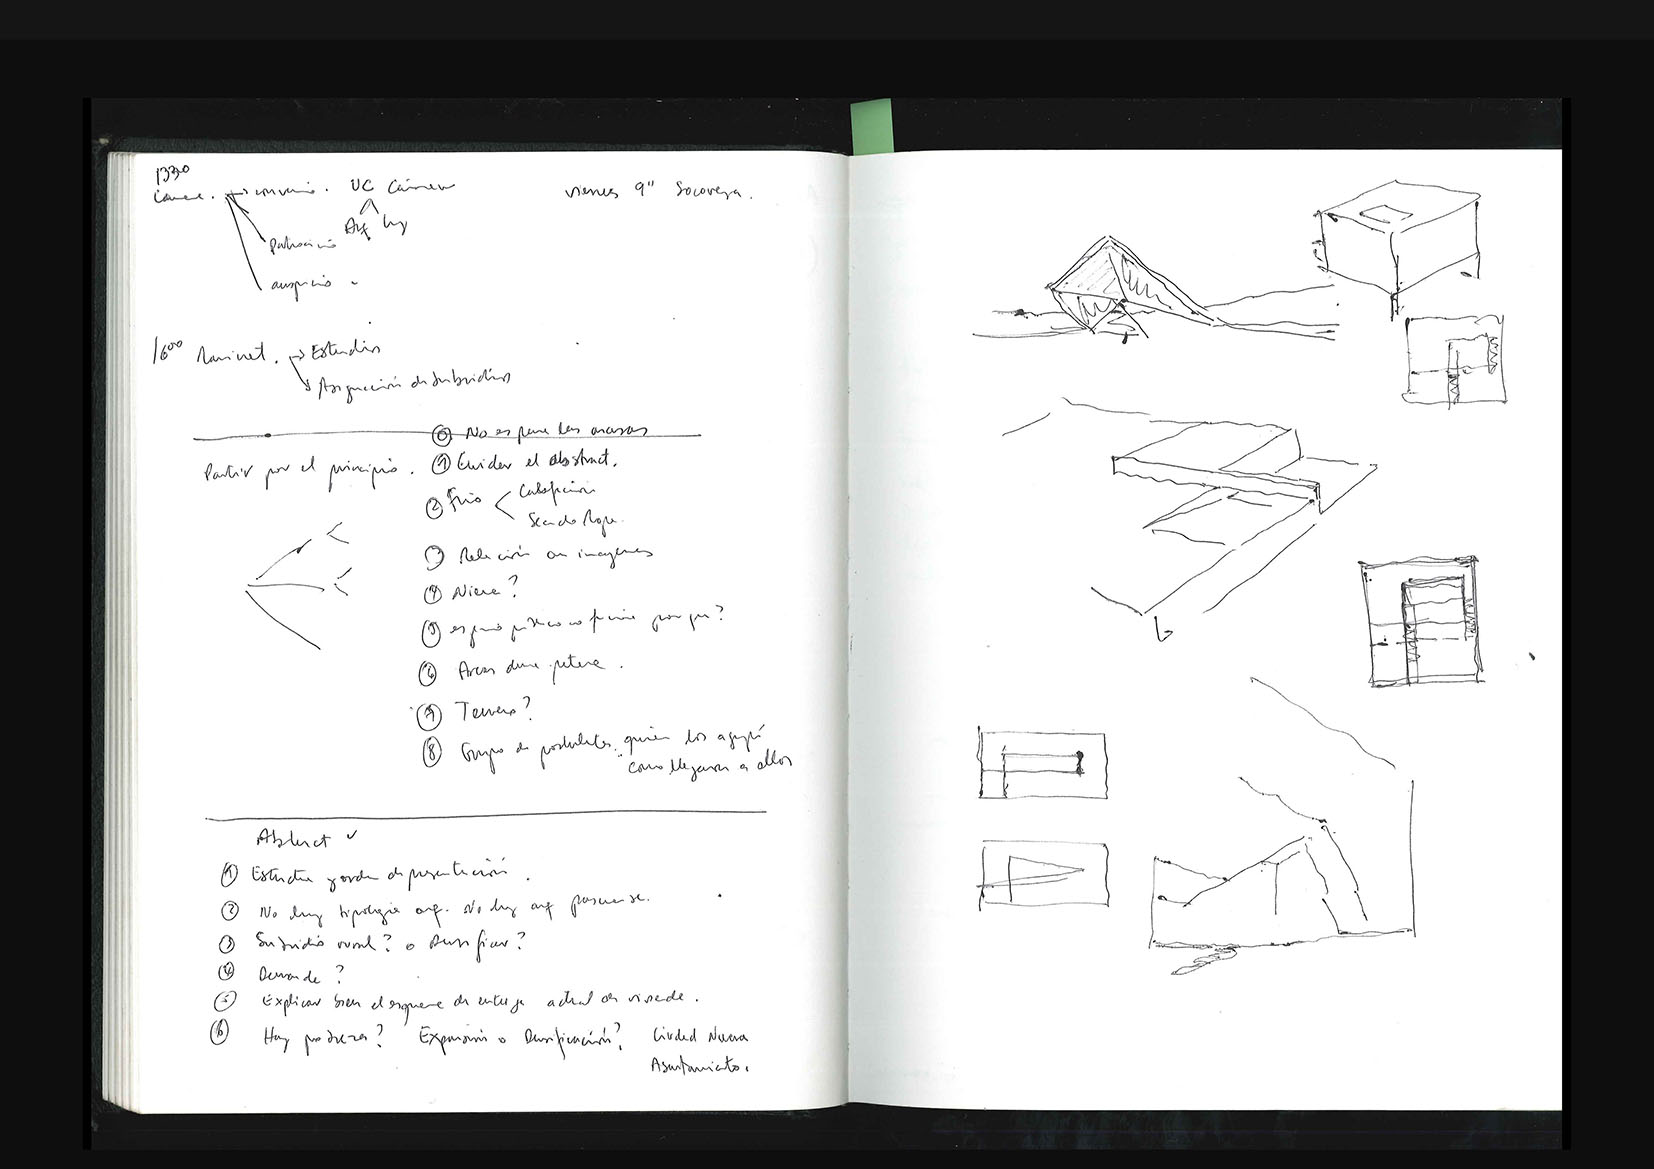 1330
convenio. UC Cámara
viernes 9" Socovesa.
Arq Ing
Patrocinio
auspicio
1600 Ravinet. → Estudios
Asignación de Subsidios
⓪ No es para las masas
Partir por el principio. ① Cuidar el abstract.
② Frío < Calefacción
Secado Ropa.
③ Relación con imágenes
④ Nieve?
⑤ espacio público no funciona porque?
⑥ Arcas dura
⑦ Terreno?
⑧ Grupo de postulantes. quién los agrupó
como llegaron a ellos
Abstract ✓
① Estructura y orden de presentación.
② No hay tipología arq. No hay arq
③ Subsidio rural? o Densificar?
④ Demanda?
⑤ Explicar bien el esquema de entrega actual de vivienda.
⑥ Hay pobreza? Expansión o Densificación? Ciudad Nueva
Asentamiento.